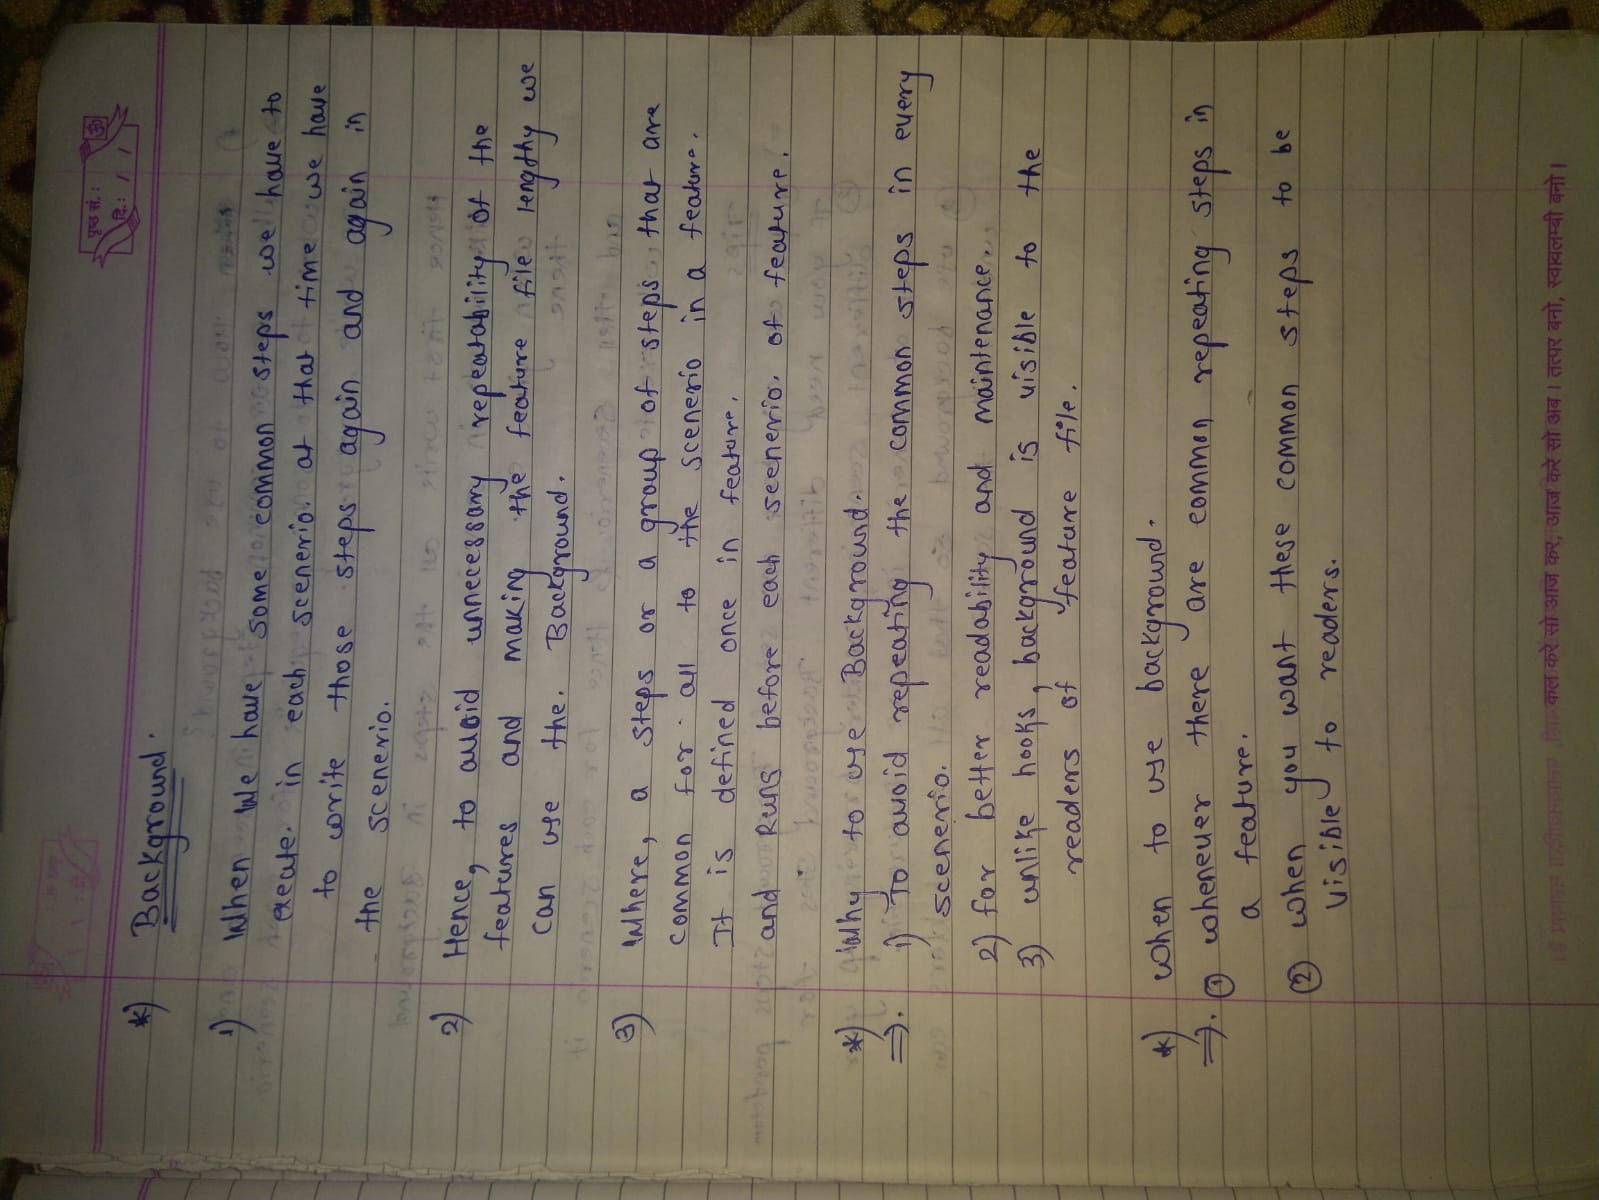 पृष्ठ सं.:
दि.: / /
*) Background.
1) When we have some common steps we have to
exeate. in each scenerio. at that time we have
to write those steps again and again in
the scenerio.
2) Hence, to avoid unnecessary repeatability of the
features and making the feature file lengthy we
can use the. Background.
3) Where, a steps or a group of steps that are
common for all to the scenerio in a feature.
It is defined once in feature.
and Runs before each scenerio. of feature.
*) Why to use Background.
⇒. 1) To avoid repeating the common steps in every
scenerio.
2) for better readability and maintenance.
3) unlike hooks, background is visible to the
readers of feature file.
*) when to use background.
⇒. ① whenever there are common repeating steps in
a feature.
② when you want these common steps to be
visible to readers.
कल करे सो आज कर, आज करे सो अब । तत्पर बनो, स्वावलम्बी बनो ।